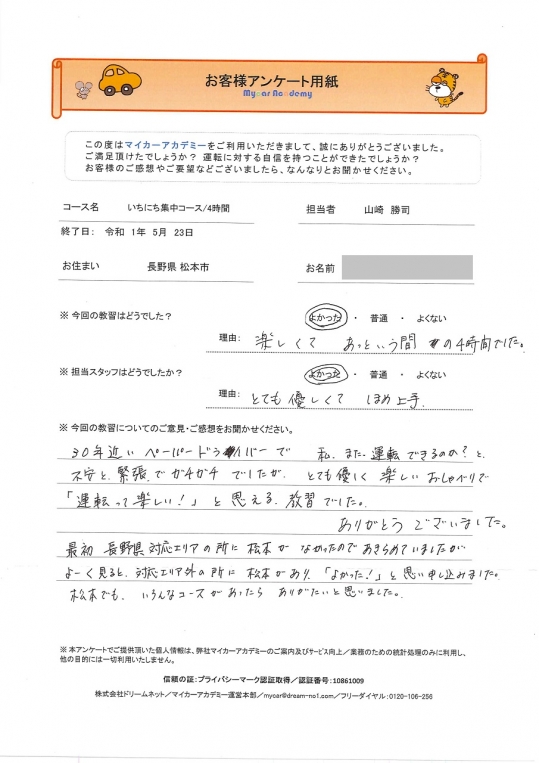 お客様アンケート用紙
Mycar Academy
この度はマイカーアカデミーをご利用いただきまして、誠にありがとうございました。
ご満足頂けたでしょうか? 運転に対する自信を持つことができたでしょうか?
お客様のご感想やご要望などございましたら、なんなりとお聞かせください。
コース名 いちにち集中コース/4時間 担当者 山崎 勝司
終了日: 令和 1年 5月 23日
お住まい 長野県 松本市 お名前
※ 今回の教習はどうでした? よかった ・ 普通 ・ よくない
理由: 楽しくて あっという間 の4時間でした。
※ 担当スタッフはどうでしたか? よかった ・ 普通 ・ よくない
理由: とても優しくて ほめ上手.
※ 今回の教習についてのご意見・ご感想をお聞かせください。
30年近いペーパードライバーで 私、また運転できるのか?と、
不安と、緊張でガチガチでしたが、とても優しく楽しいおしゃべりで
「運転って楽しい!」と思える、教習でした。
ありがとうございました。
最初 長野県対応エリアの所に松本がなかったのであきらめていましたが
よーく見ると、対応エリア外の所に松本があり、「よかった!」と思い申し込みました。
松本でも、いろんなコースがあったら ありがたいと思いました。
※ 本アンケートでご提供頂いた個人情報は、弊社マイカーアカデミーのご案内及びサービス向上/業務のための統計処理のみに利用し、
他の目的には一切利用いたしません。
信頼の証:プライバシーマーク認証取得/認証番号:10861009
株式会社ドリームネット/マイカーアカデミー運営本部/mycar@dream-no1.com/フリーダイヤル:0120-106-256